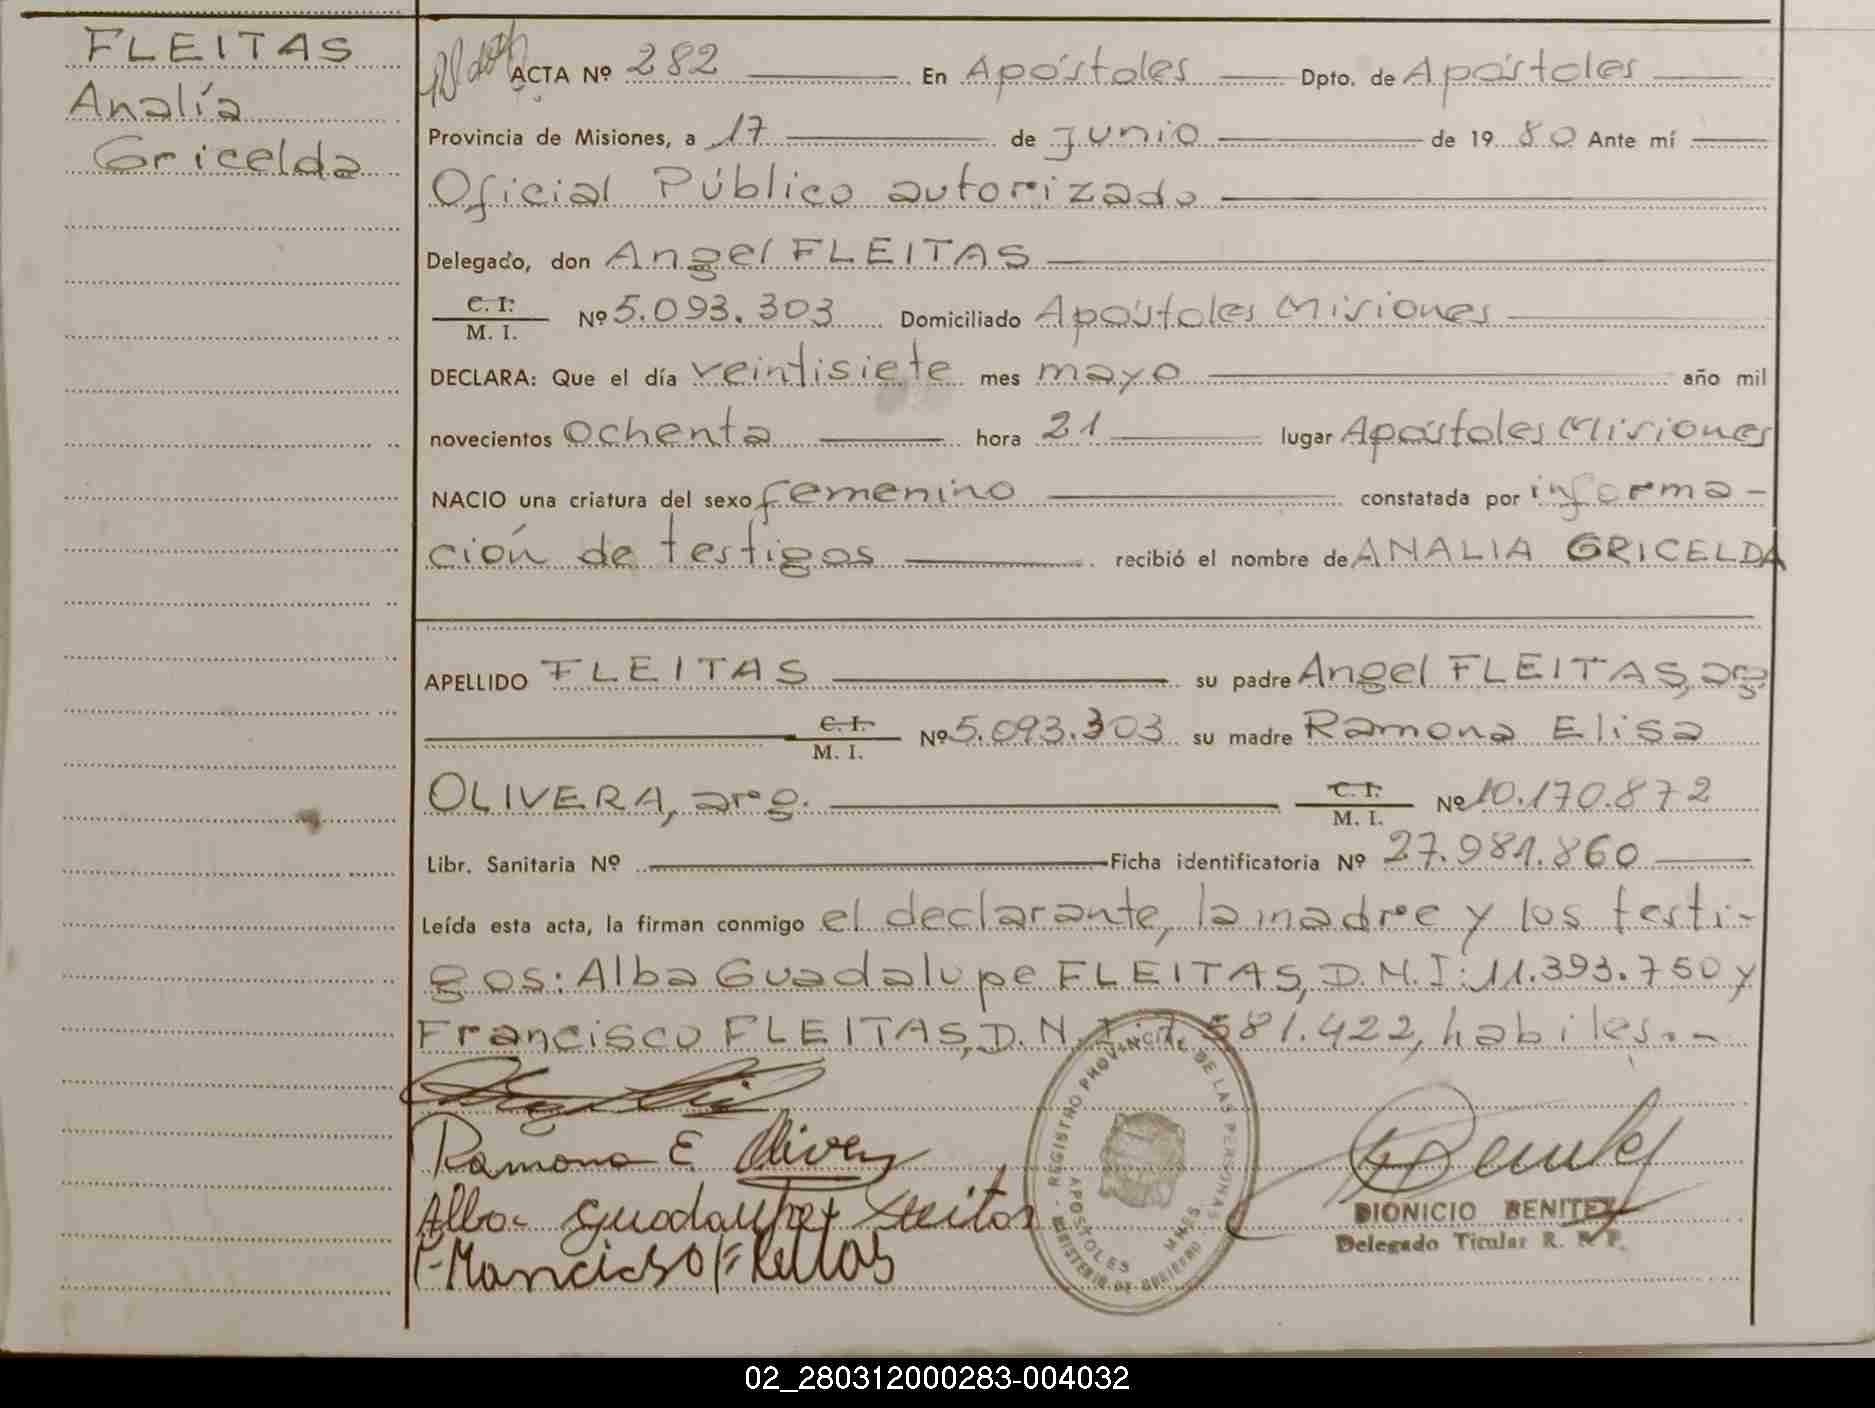 FLEITAS
Analía
Gricelda
ACTA Nº 282 En Apóstoles Dpto. de Apóstoles
Provincia de Misiones, a 17 de junio de 1980 Ante mí
Oficial Público autorizado
Delegado, don Angel FLEITAS
C. I. / M. I. Nº 5.093.303 Domiciliado Apóstoles Misiones
DECLARA: Que el día veintisiete mes mayo año mil
novecientos ochenta hora 21 lugar Apóstoles Misiones
NACIO una criatura del sexo femenino constatada por informa-
ción de testigos recibió el nombre de ANALIA GRICELDA
APELLIDO FLEITAS su padre Angel FLEITAS, arg.
C. I. / M. I. Nº 5.093.303 su madre Ramona Elisa
OLIVERA, arg. C. I. / M. I. Nº 10.170.872
Libr. Sanitaria Nº Ficha identificatoria Nº 27.981.860
Leída esta acta, la firman conmigo el declarante, la madre y los testi-
gos: Alba Guadalupe FLEITAS, D.N.I: 11.393.750 y
Francisco FLEITAS, D.N.I: 7.581.422, habiles.-
Ramona E Olivera
Alba Guadalupe Fleitas
REGISTRO PROVINCIAL DE LAS PERSONAS
MINISTERIO DE GOBIERNO
APOSTOLES MNES.
DIONICIO BENITEZ
Delegado Titular R. P. P.
02_280312000283-004032